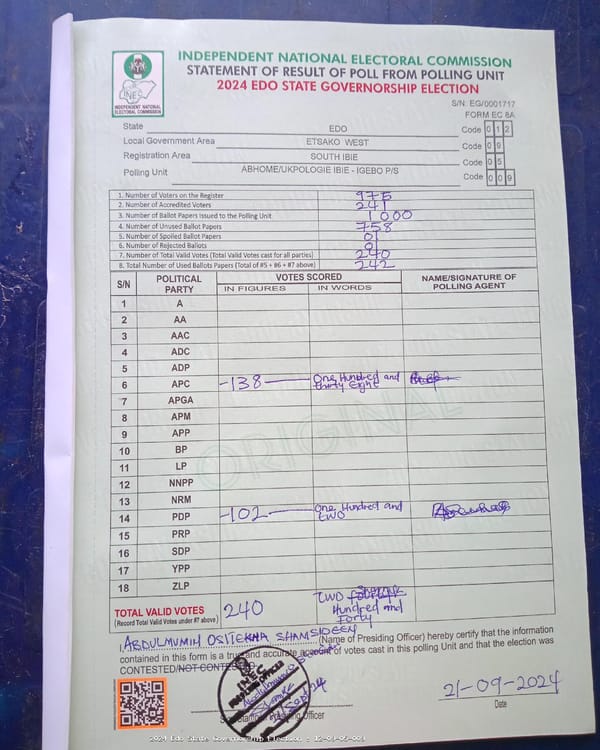 INDEPENDENT NATIONAL ELECTORAL COMMISSION
STATEMENT OF RESULT OF POLL FROM POLLING UNIT
2024 EDO STATE GOVERNORSHIP ELECTION
INEC
INDEPENDENT NATIONAL
ELECTORAL COMMISSION
S/N. EG/0001717
FORM EC 8A
State EDO Code 012
Local Government Area ETSAKO WEST Code 09
Registration Area SOUTH IBIE Code 05
Polling Unit ABHOME/UKPOLOGIE IBIE - IGEBO P/S Code 009
1. Number of Voters on the Register 975
2. Number of Accredited Voters 241
3. Number of Ballot Papers Issued to the Polling Unit 1000
4. Number of Unused Ballot Papers 758
5. Number of Spoiled Ballot Papers 01
6. Number of Rejected Ballots 01
7. Number of Total Valid Votes (Total Valid Votes cast for all parties) 240
8. Total Number of Used Ballots Papers (Total of #5 + #6 + #7 above) 242
S/N POLITICAL PARTY VOTES SCORED NAME/SIGNATURE OF POLLING AGENT
IN FIGURES IN WORDS
1 A
2 AA
3 AAC
4 ADC
5 ADP
6 APC -138- One Hundred and thirty Eight
7 APGA
8 APM
9 APP
10 BP
11 LP
12 NNPP
13 NRM
14 PDP -102- One Hundred and two
15 PRP
16 SDP
17 YPP
18 ZLP
ORIGINAL
TOTAL VALID VOTES 240 TWO Hundred and Forty
(Record Total Valid Votes under #7 above)
I, ABDULMUMIN OSITEKHA SHAMSIDEEN (Name of Presiding Officer) hereby certify that the information
contained in this form is a true and accurate account of votes cast in this polling Unit and that the election was
CONTESTED/NOT CONTESTED
INEC
PRESIDING OFFICER
21-09-2024
Date
Officer
2024 Edo State Governorship Election : 12-09-05-009